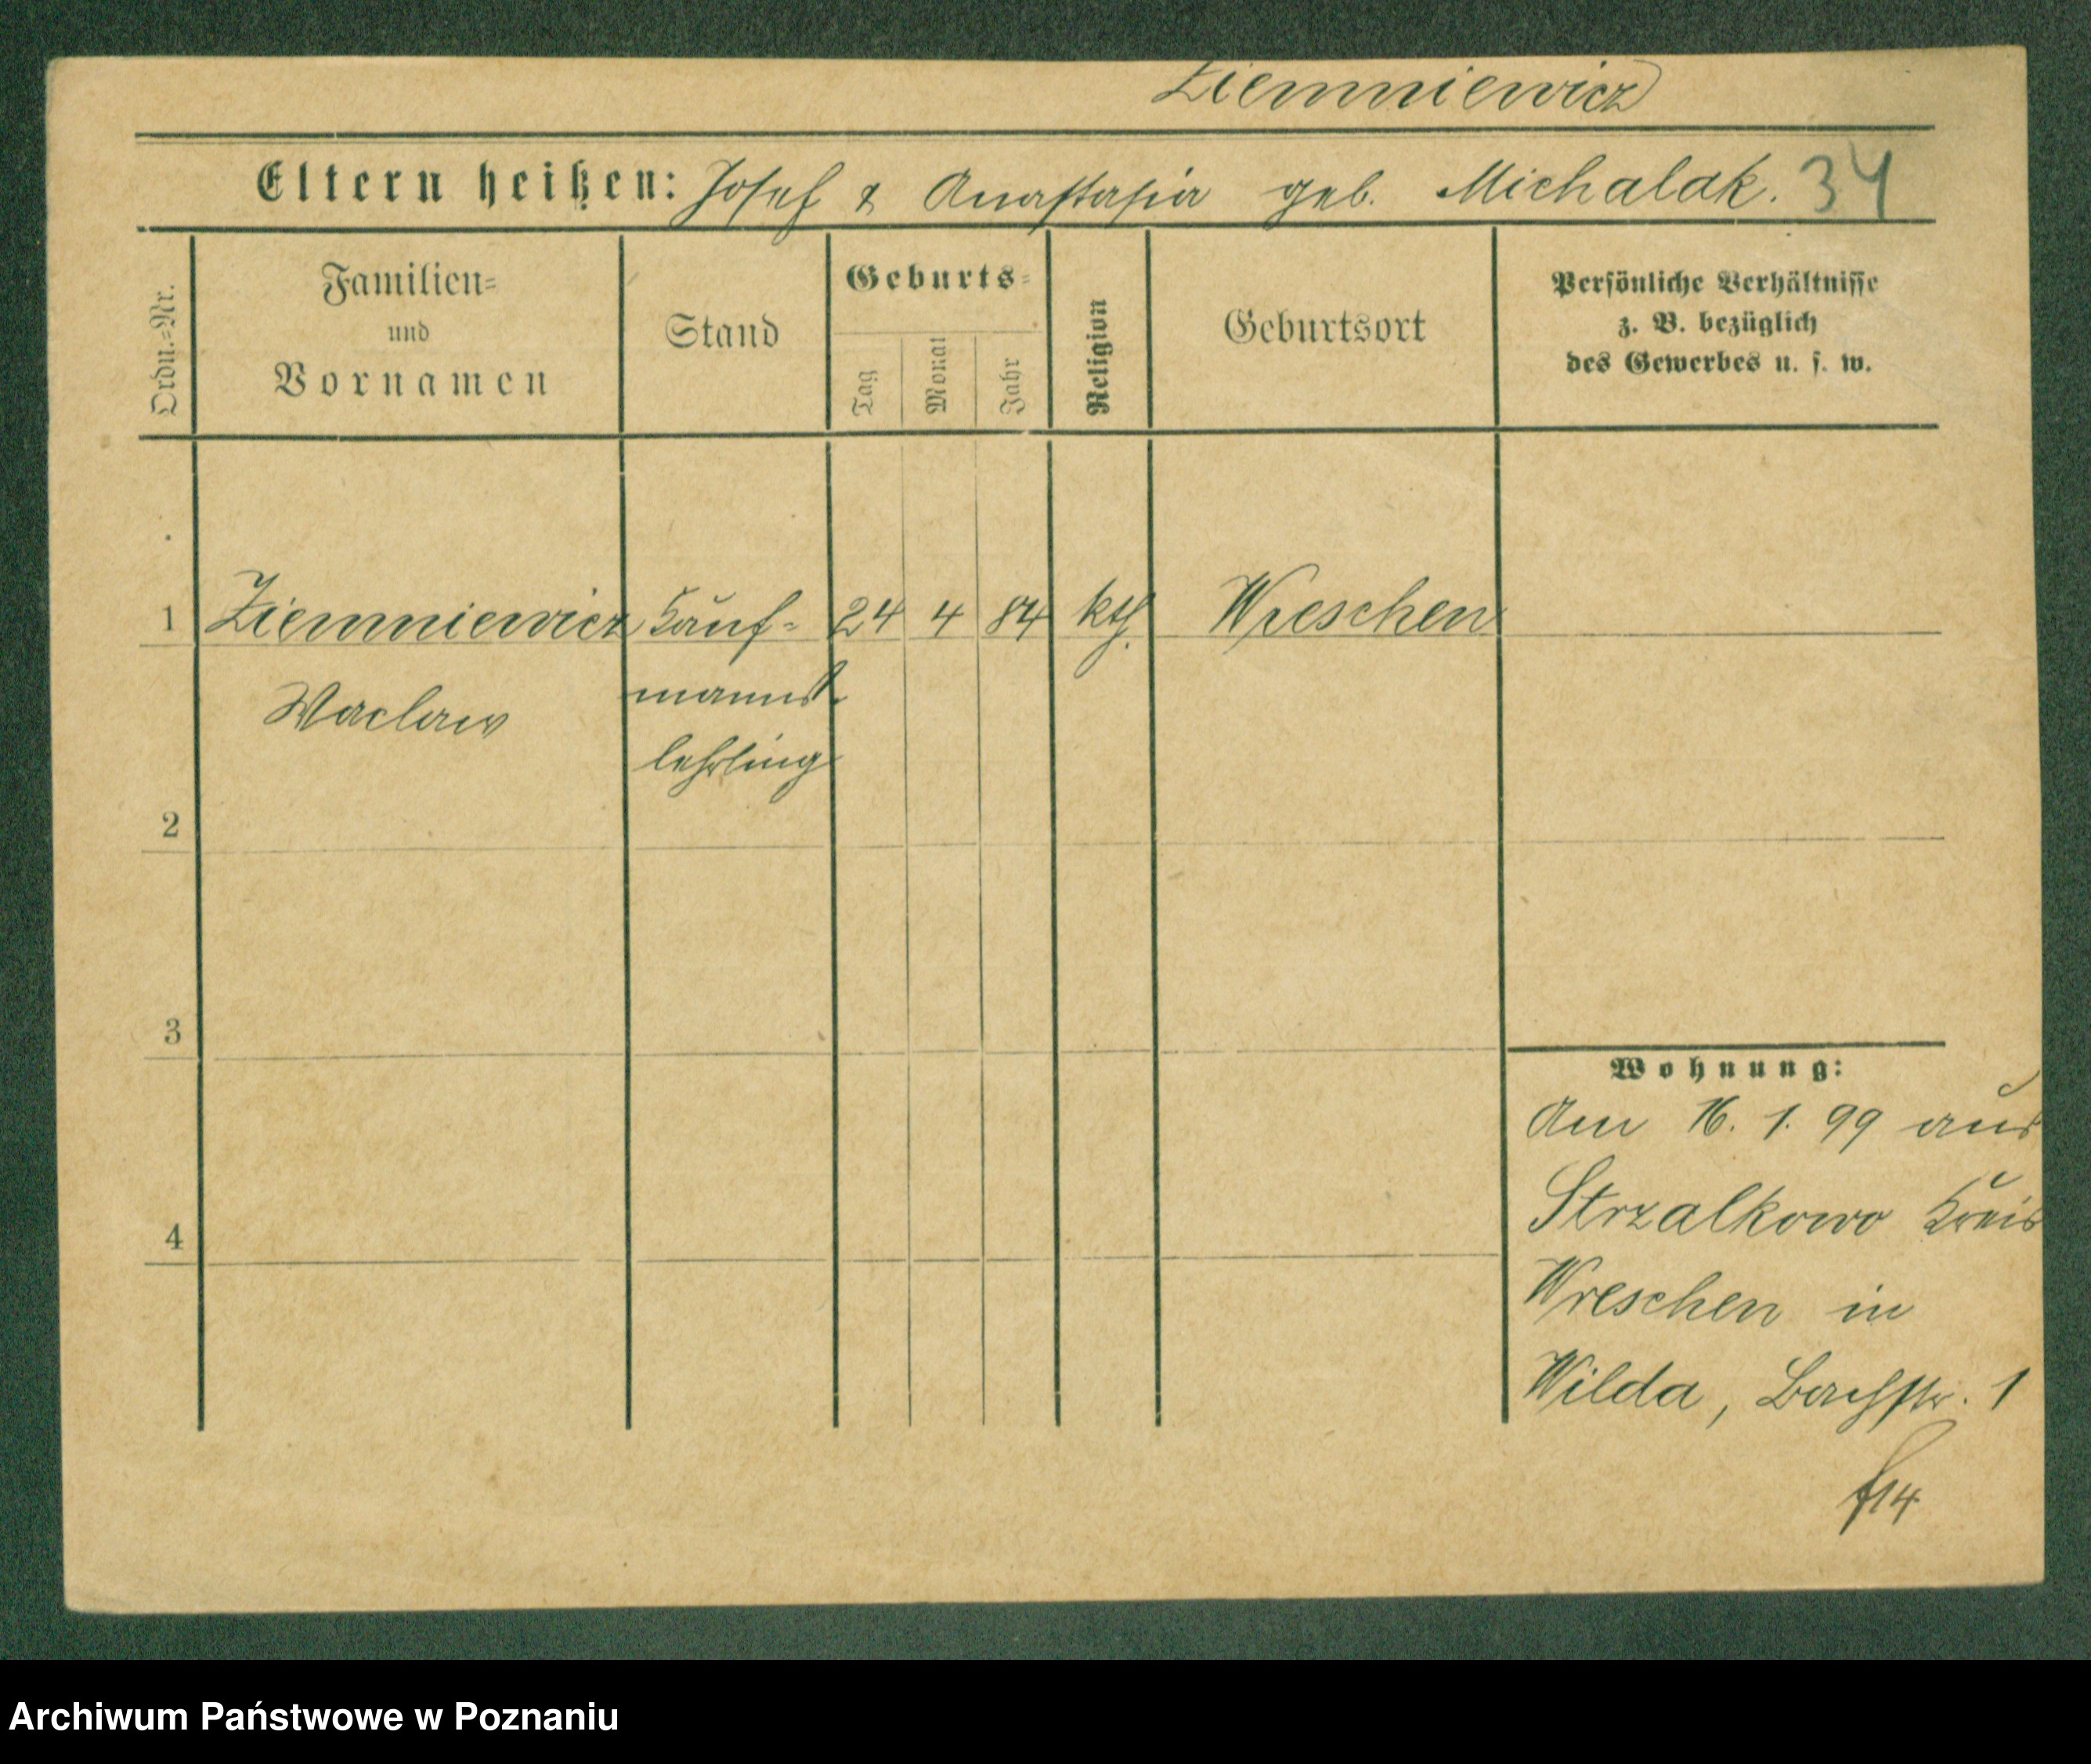 Ziemniewicz
Eltern heißen: Josef & Anastasia geb. Michalak. 34
Ordn.=Nr.
Familien=
und
Vornamen
Stand
Geburts=
Tag
Monat
Jahr
Religion
Geburtsort
Persönliche Verhältnisse
z. B. bezüglich
des Gewerbes u. s. w.
1 Ziemniewicz Kauf= 24 4 84 kth. Wreschen
Waclaw
manns-
lehrling
2
3
4
Wohnung:
Am 16. 1. 99 aus
Strzalkowo Kreis
Wreschen in
Wilda, Bachstr. 1
Archiwum Państwowe w Poznaniu